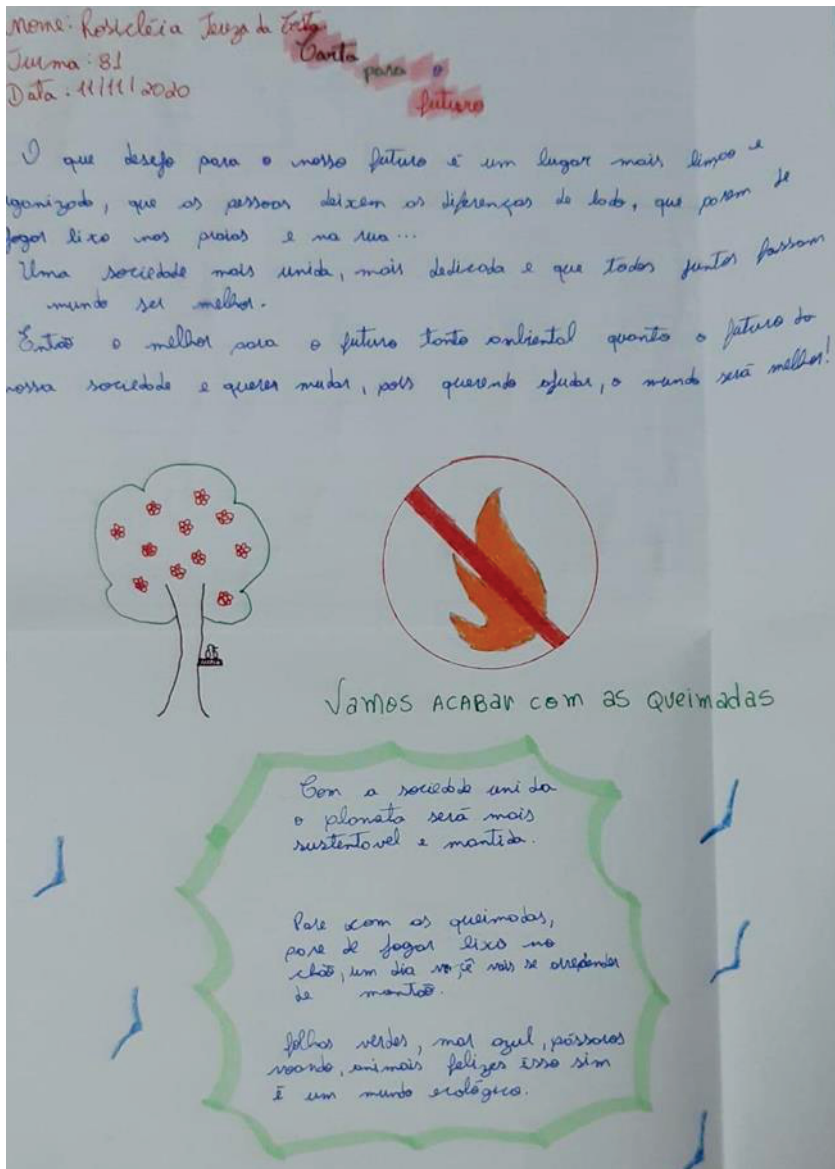 Nome: Rosicléia Teuza da
Turma: 81
Data: 11/11/2020
Carta
para o
futuro
O que desejo para o nosso futuro é um lugar mais limpo e
rganizado, que as pessoas deixem as diferenças de lado, que parem de
jogar lixo nas praias e na rua...
Uma sociedade mais unida, mais dedicada e que todos juntos fassam
mundo ser melhor.
Então o melhor para o futuro tanto ambiental quanto o futuro da
nossa sociedade e querer mudar, pois querendo ajudar, o mundo será melhor!
Vamos ACABAr com as Queimadas
Com a sociedade unida
o planeta será mais
sustentavel e mantida.
Pare com as queimadas,
pare de jogar lixo no
chão, um dia você vais se arrepender
de montão.
folhas verdes, mar azul, pássaros
voando, animais felizes isso sim
é um mundo ecológico.